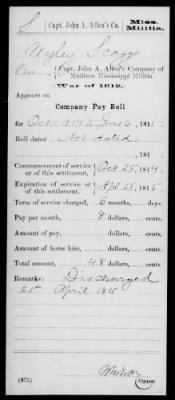 S | Capt. John A. Allen's Co. | Miss. Militia.
Wyley Scagg
Capt. John A. Allen's Company of Madison Mississippi Militia.
War of 1812.
Appears on
Company Pay Roll
for Oct 1814 to June 6, 1815.
Roll dated Not dated
, 181 .
Commencement of service or of this settlement, Oct 25, 1814.
Expiration of service or of this settlement, Apr 25, 1815.
Term of service charged, 6 months, days.
Pay per month, 8 dollars, cents.
Amount of pay, dollars, cents.
Amount of horse hire, dollars, cents.
Total amount, 48 dollars, cents.
Remarks: Discharged
25th April 1815
(672)
Copyist.